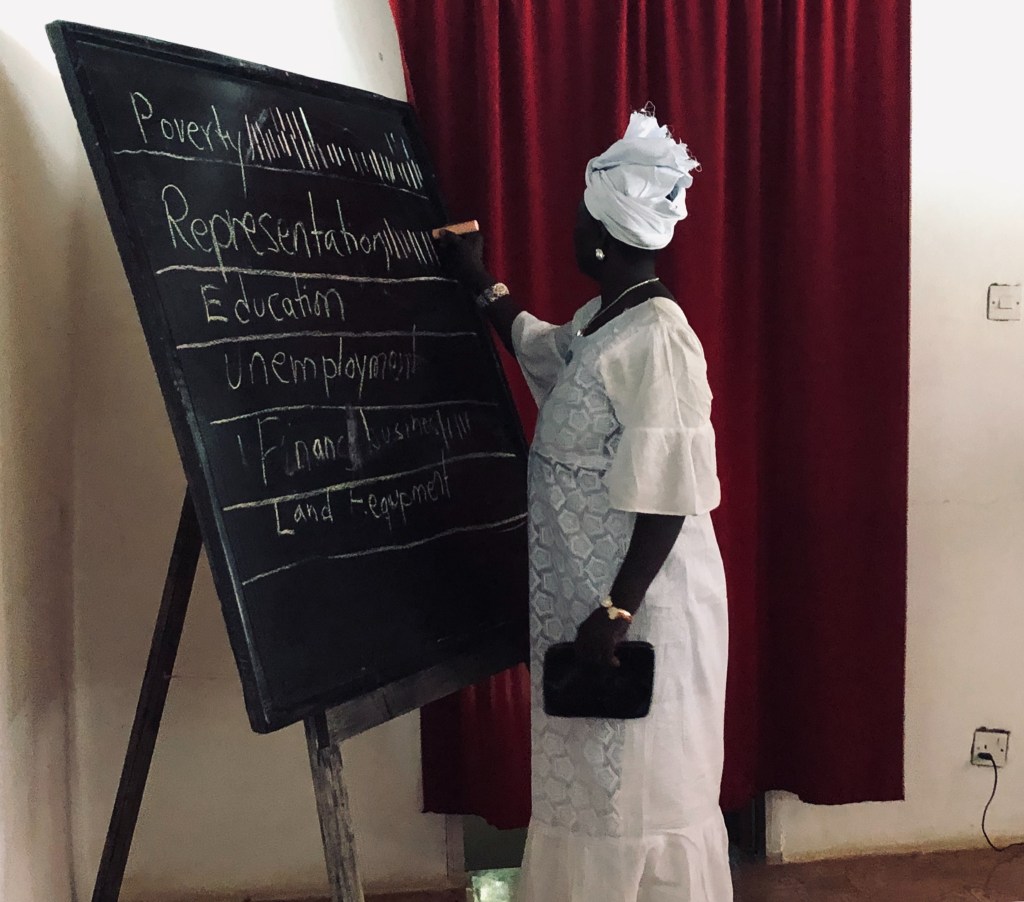 Poverty
Representation
Education
Unemployment
Financ business
Land & equpment